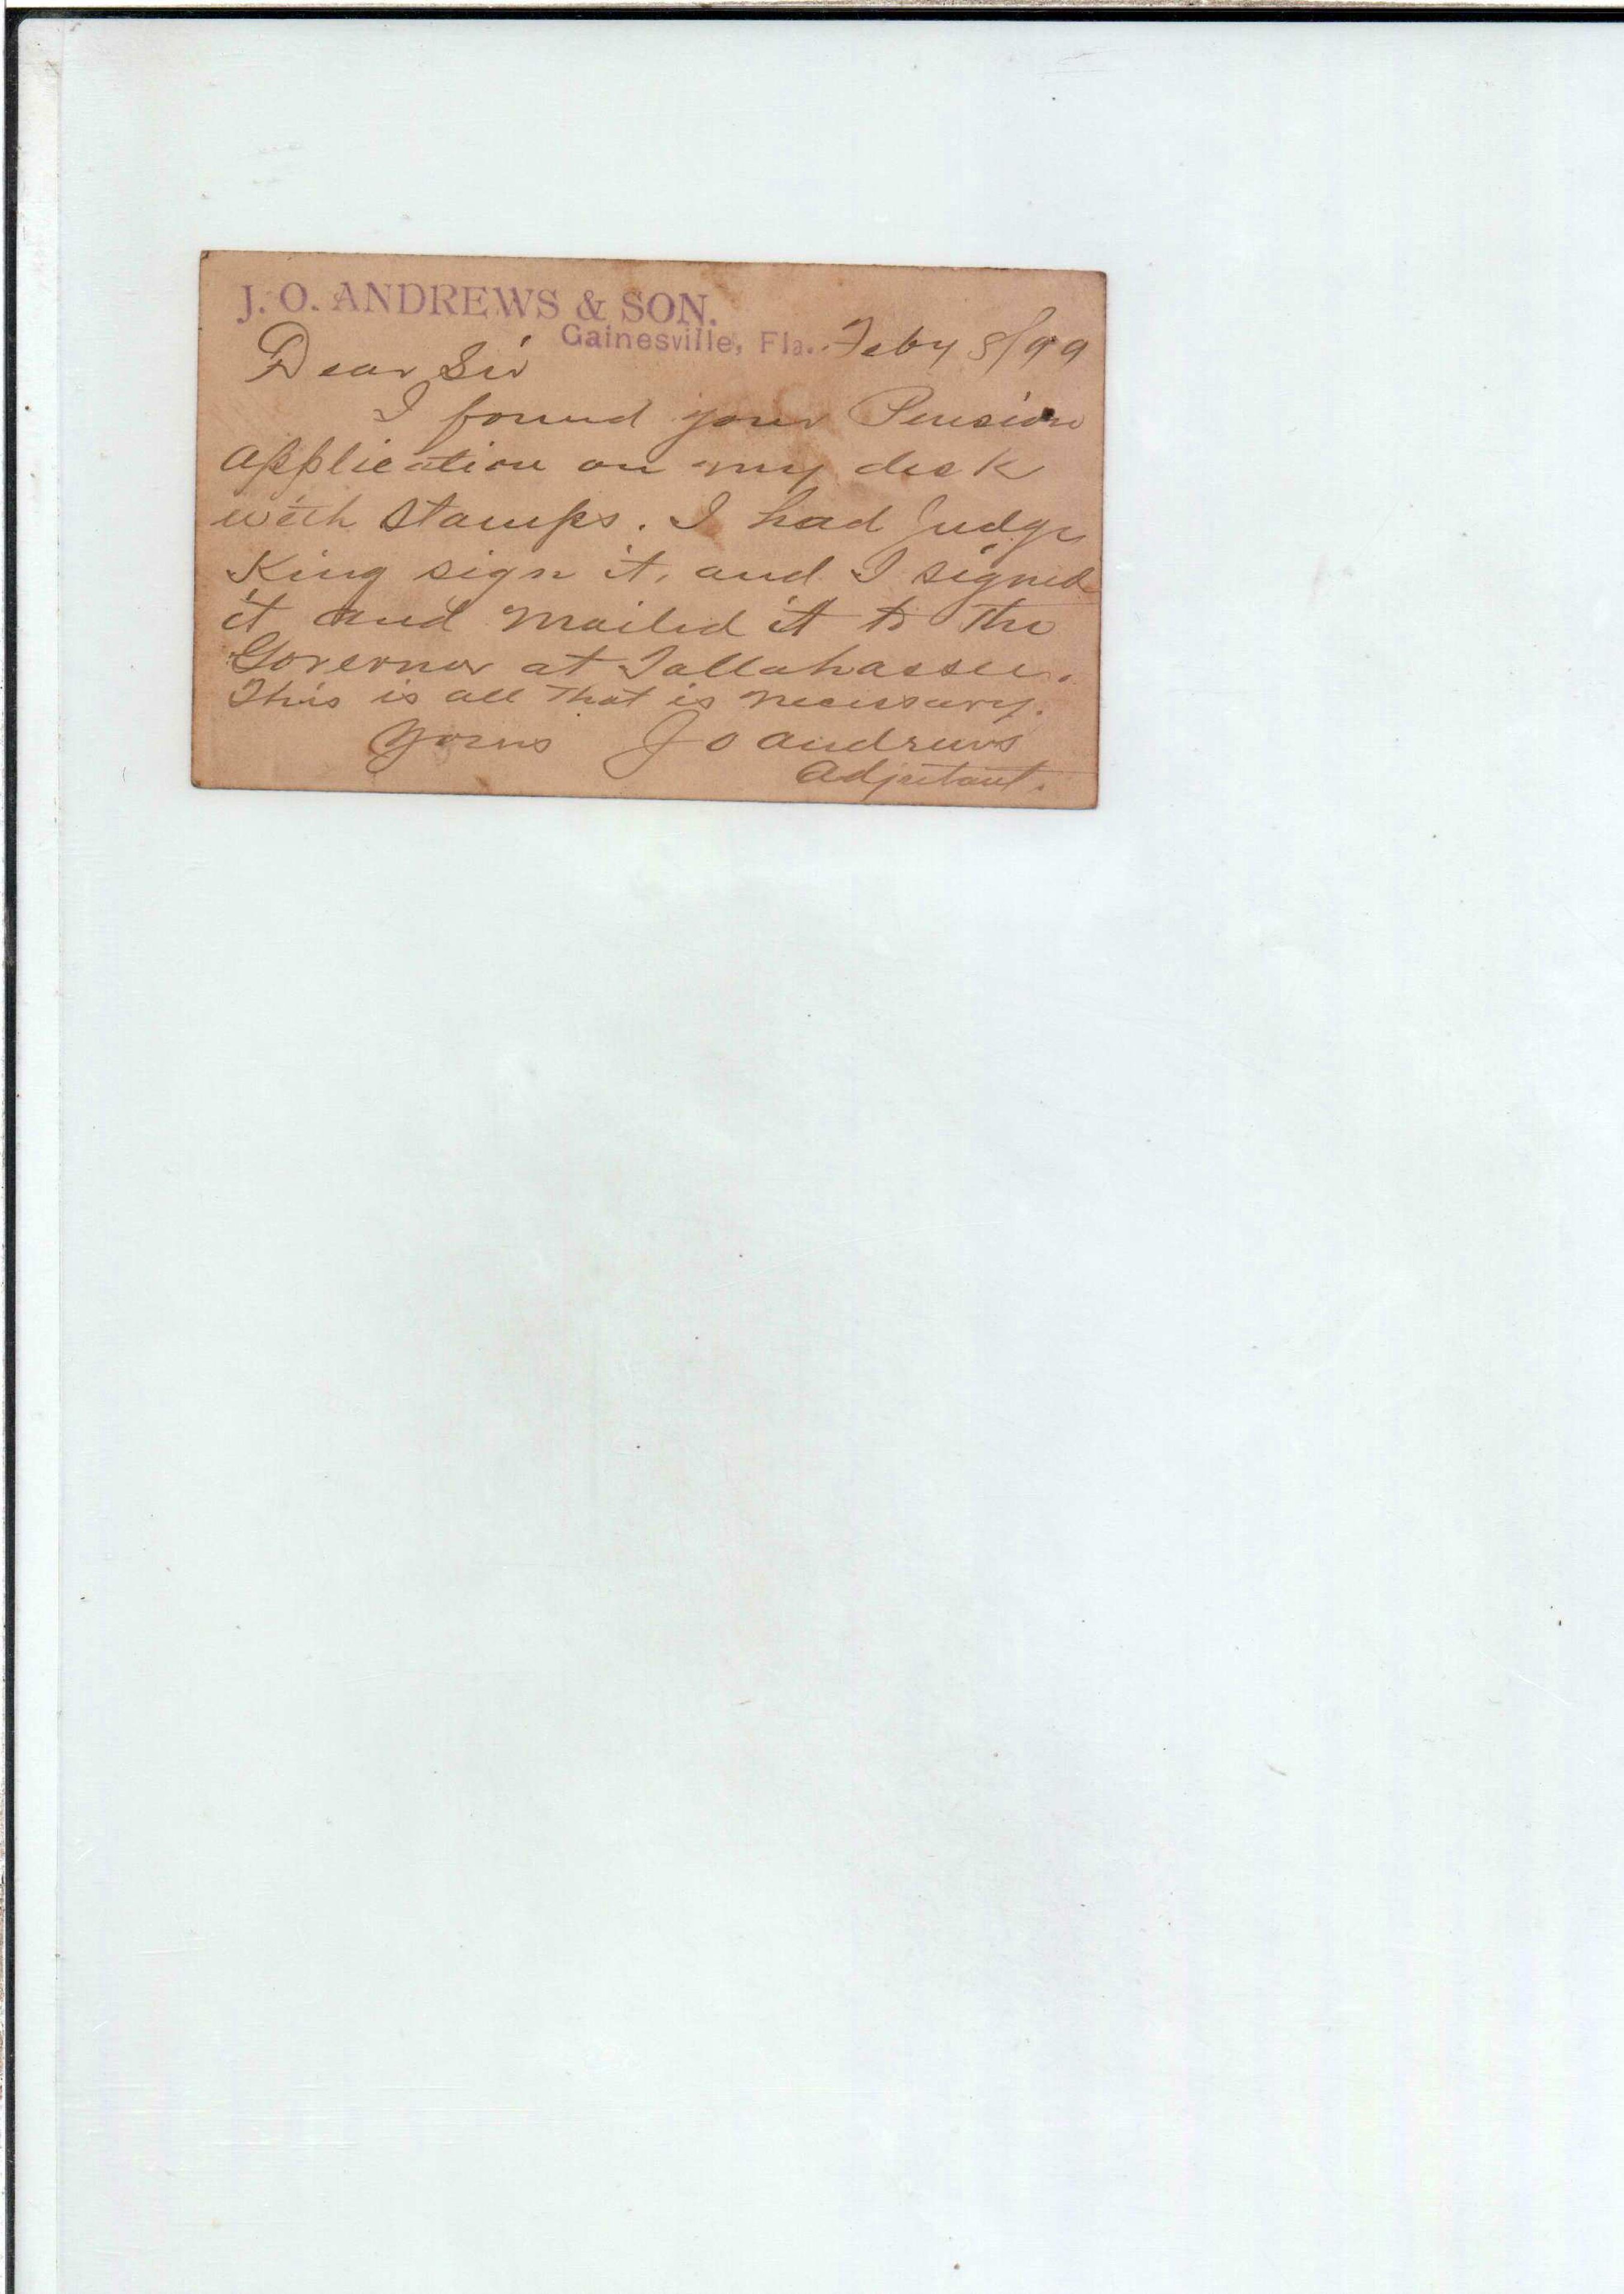 J. O. ANDREWS & SON.
Gainesville, Fla. Feby 8/99
Dear Sir
I found your Pension
application on my desk
with Stamps. I had Judge
King sign it, and I signed
it and mailed it to The
Governor at Tallahassee.
This is all That is necessary.
Yours J O Andrews
Adjutant.